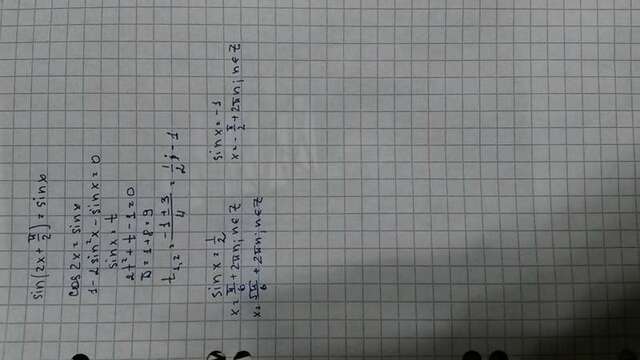 sin(2x + π/2) = sin x
cos 2x = sin x
1 - 2 sin²x - sin x = 0
sin x = t
2t² + t - 1 = 0
D = 1 + 8 = 9
t₁,₂ = (-1 ± 3)/4 = 1/2; -1
sin x = 1/2
x = π/6 + 2πn; n∈Z
x = 5π/6 + 2πn; n∈Z
sin x = -1
x = -π/2 + 2πn; n∈Z